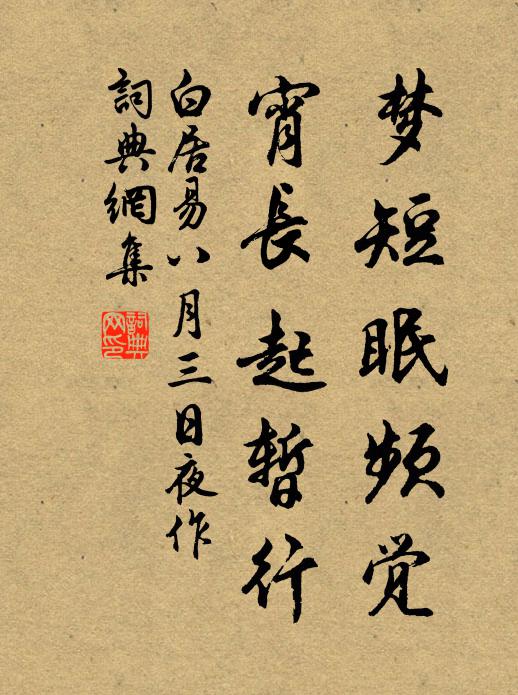 梦短眠频觉
宵長起暫行
白居易八月三日夜作
詞典網集
詞典網印